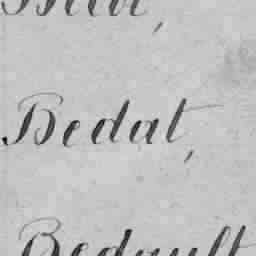 Bedat,
Bedault